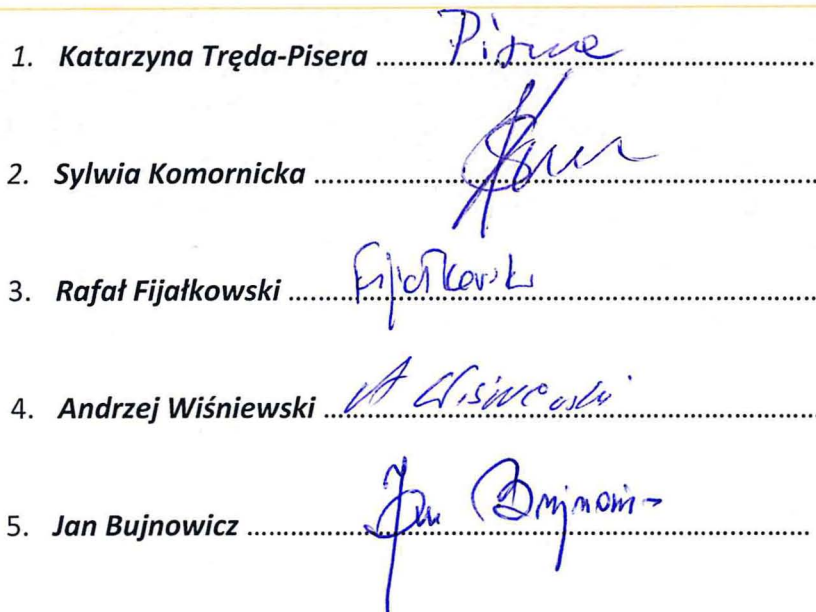 1. Katarzyna Tręda-Pisera ............................................................
2. Sylwia Komornicka ............................................................
3. Rafał Fijałkowski ............................................................ Fijałkowski
4. Andrzej Wiśniewski ............................................................ A Wiśniewski
5. Jan Bujnowicz ............................................................ Jan